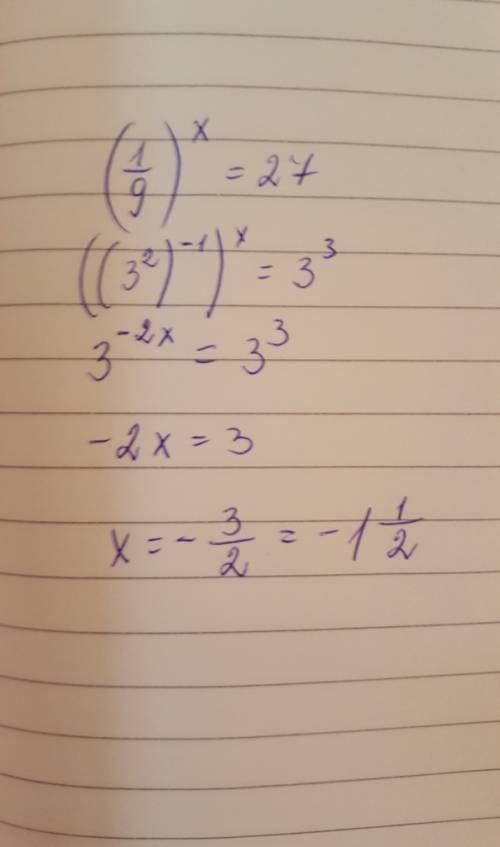 (1/9)^x = 27
((3^2)^-1)^x = 3^3
3^-2x = 3^3
-2x = 3
x = - 3/2 = -1 1/2